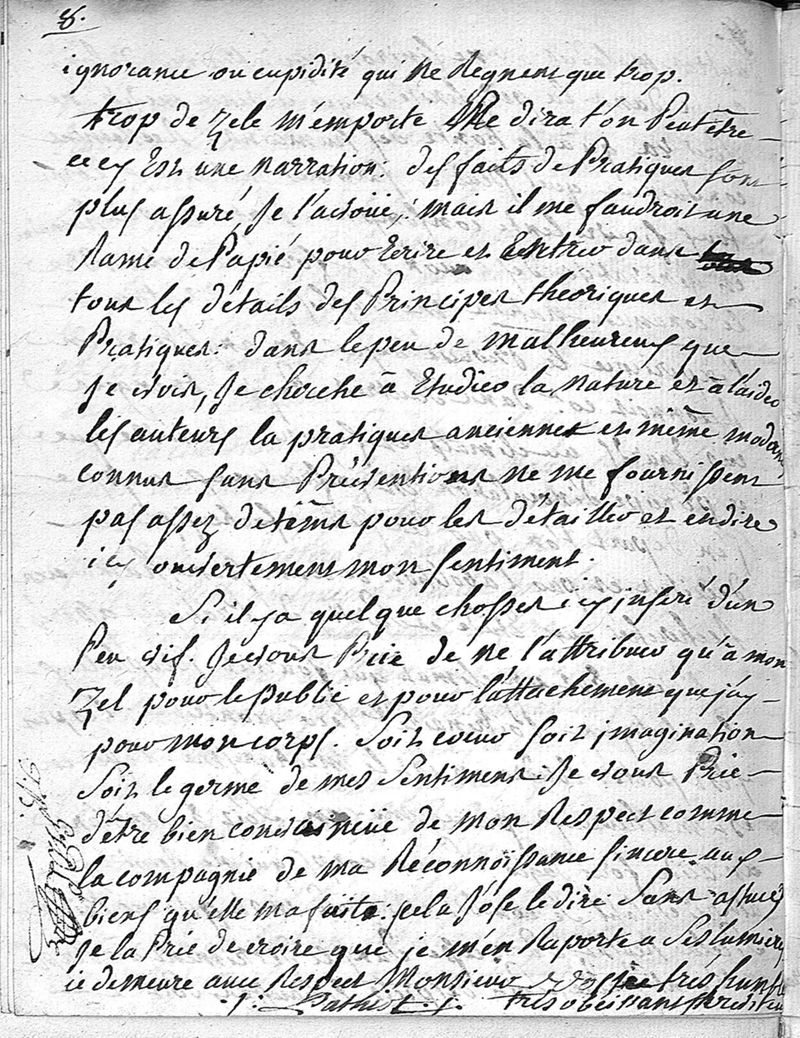 8.
ignorance ou cupidité qui ne Regnent que trop.
trop de Zele m'emporte Me dira t'on Peut être
cecy Est une narration: des faits de Pratiques sont
plus assuré, Je l'avoüe; mais il me faudroit une
Rame de Papié pour Ecrire et Entrer dans
tous les détails des Principes theoriques et
Pratiques: dans le peu de malheureux que
Je vois, Je cherche à Etudier la nature et à l'aider
les auteurs la pratiques anciennes et même modernes
connus sans Préventions ne me fournissent
pas assez de têms pour les détailler et en dire
icy ouvertement mon sentiment.
Si il y a quelque chosses icy inseré d'un
Peu vif. Je vous Prie de ne l'attribuer qu'à mon
Zel pour le Public et pour l'attachement que j'ay
pour mon corps. Soit coeur soit imagination
Soit le germe de mes Sentimens: Je vous Prie
d'être bien convaincüe de mon Respect comme
la compagnie de ma Réconnoissance sincere aux
biens qu'elle m'a faits: cela J'ose le dire Sans
Je la Prie de croire que je m'en Raporte a Ses lumieres
ie demeure avec Respect Monsieur très humble
très obeissant serviteur